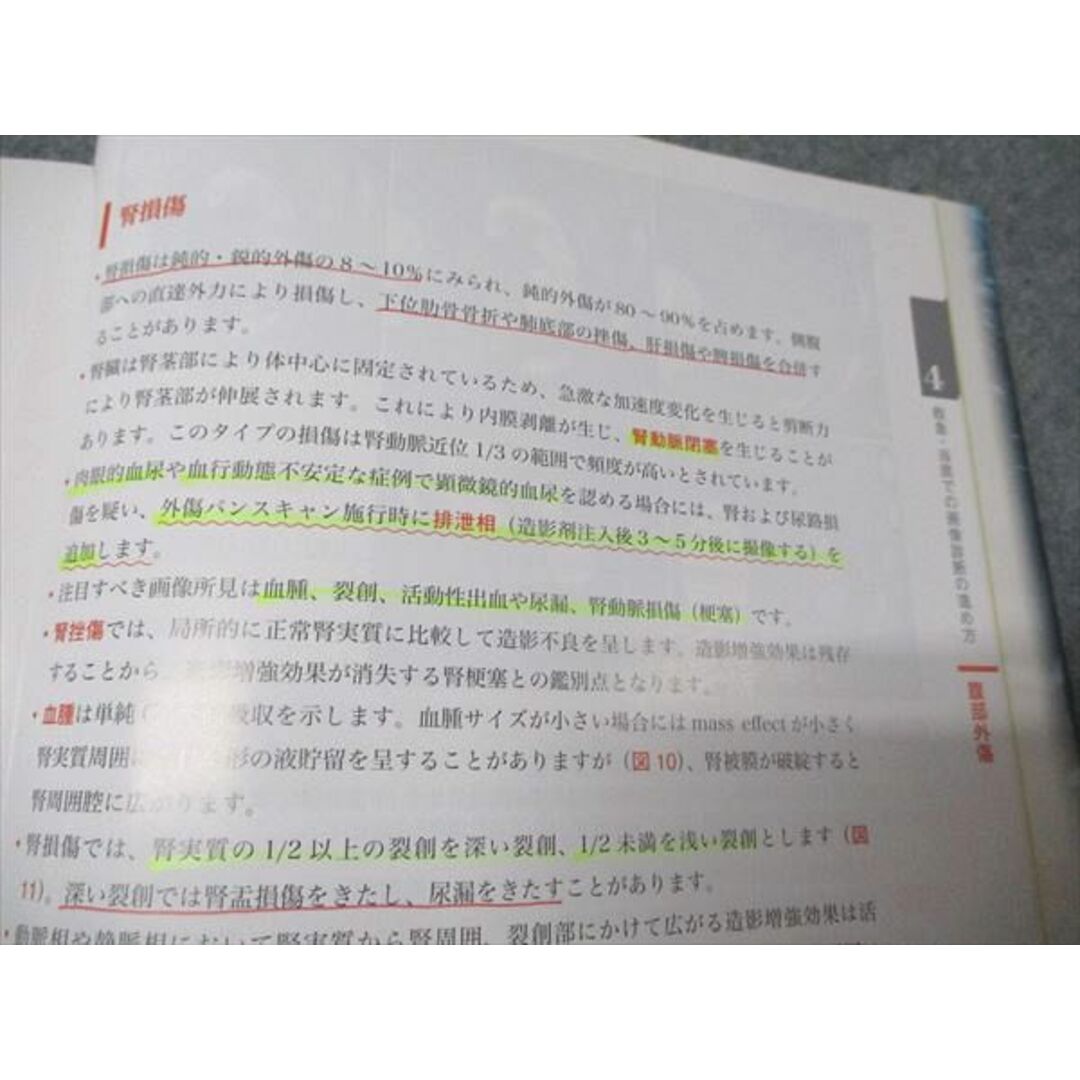 腎損傷
・腎損傷は鈍的・鋭的外傷の8～10%にみられ、鈍的外傷が80～90%を占めます。側腹
部への直達外力により損傷し、下位肋骨骨折や肺底部の挫傷、肝損傷や脾損傷を合併す
ることがあります。
・腎臓は腎茎部により体中心に固定されているため、急激な加速度変化を生じると剪断力
により腎茎部が伸展されます。これにより内膜剥離が生じ、腎動脈閉塞を生じることが
あります。このタイプの損傷は腎動脈近位1/3の範囲で頻度が高いとされています。
・肉眼的血尿や血行動態不安定な症例で顕微鏡的血尿を認める場合には、腎および尿路損
傷を疑い、外傷パンスキャン施行時に排泄相（造影剤注入後3～5分後に撮像する）を
追加します。
・注目すべき画像所見は血腫、裂創、活動性出血や尿漏、腎動脈損傷（梗塞）です。
・腎挫傷では、局所的に正常腎実質に比較して造影不良を呈します。造影増強効果は残存
することから、増強効果が消失する腎梗塞との鑑別点となります。
・血腫は単純吸収を示します。血腫サイズが小さい場合にはmass effectが小さく
腎実質周囲に形の液貯留を呈することがありますが（図10）、腎被膜が破綻すると
腎周囲腔に広がります。
・腎損傷では、腎実質の1/2以上の裂創を深い裂創、1/2未満を浅い裂創とします（図
11）。深い裂創では腎盂損傷をきたし、尿漏をきたすことがあります。
・動脈相や静脈相において腎実質から腎周囲、裂創部にかけて広がる造影増強効果は活
4
救急・当直での画像診断の進め方
腹部外傷